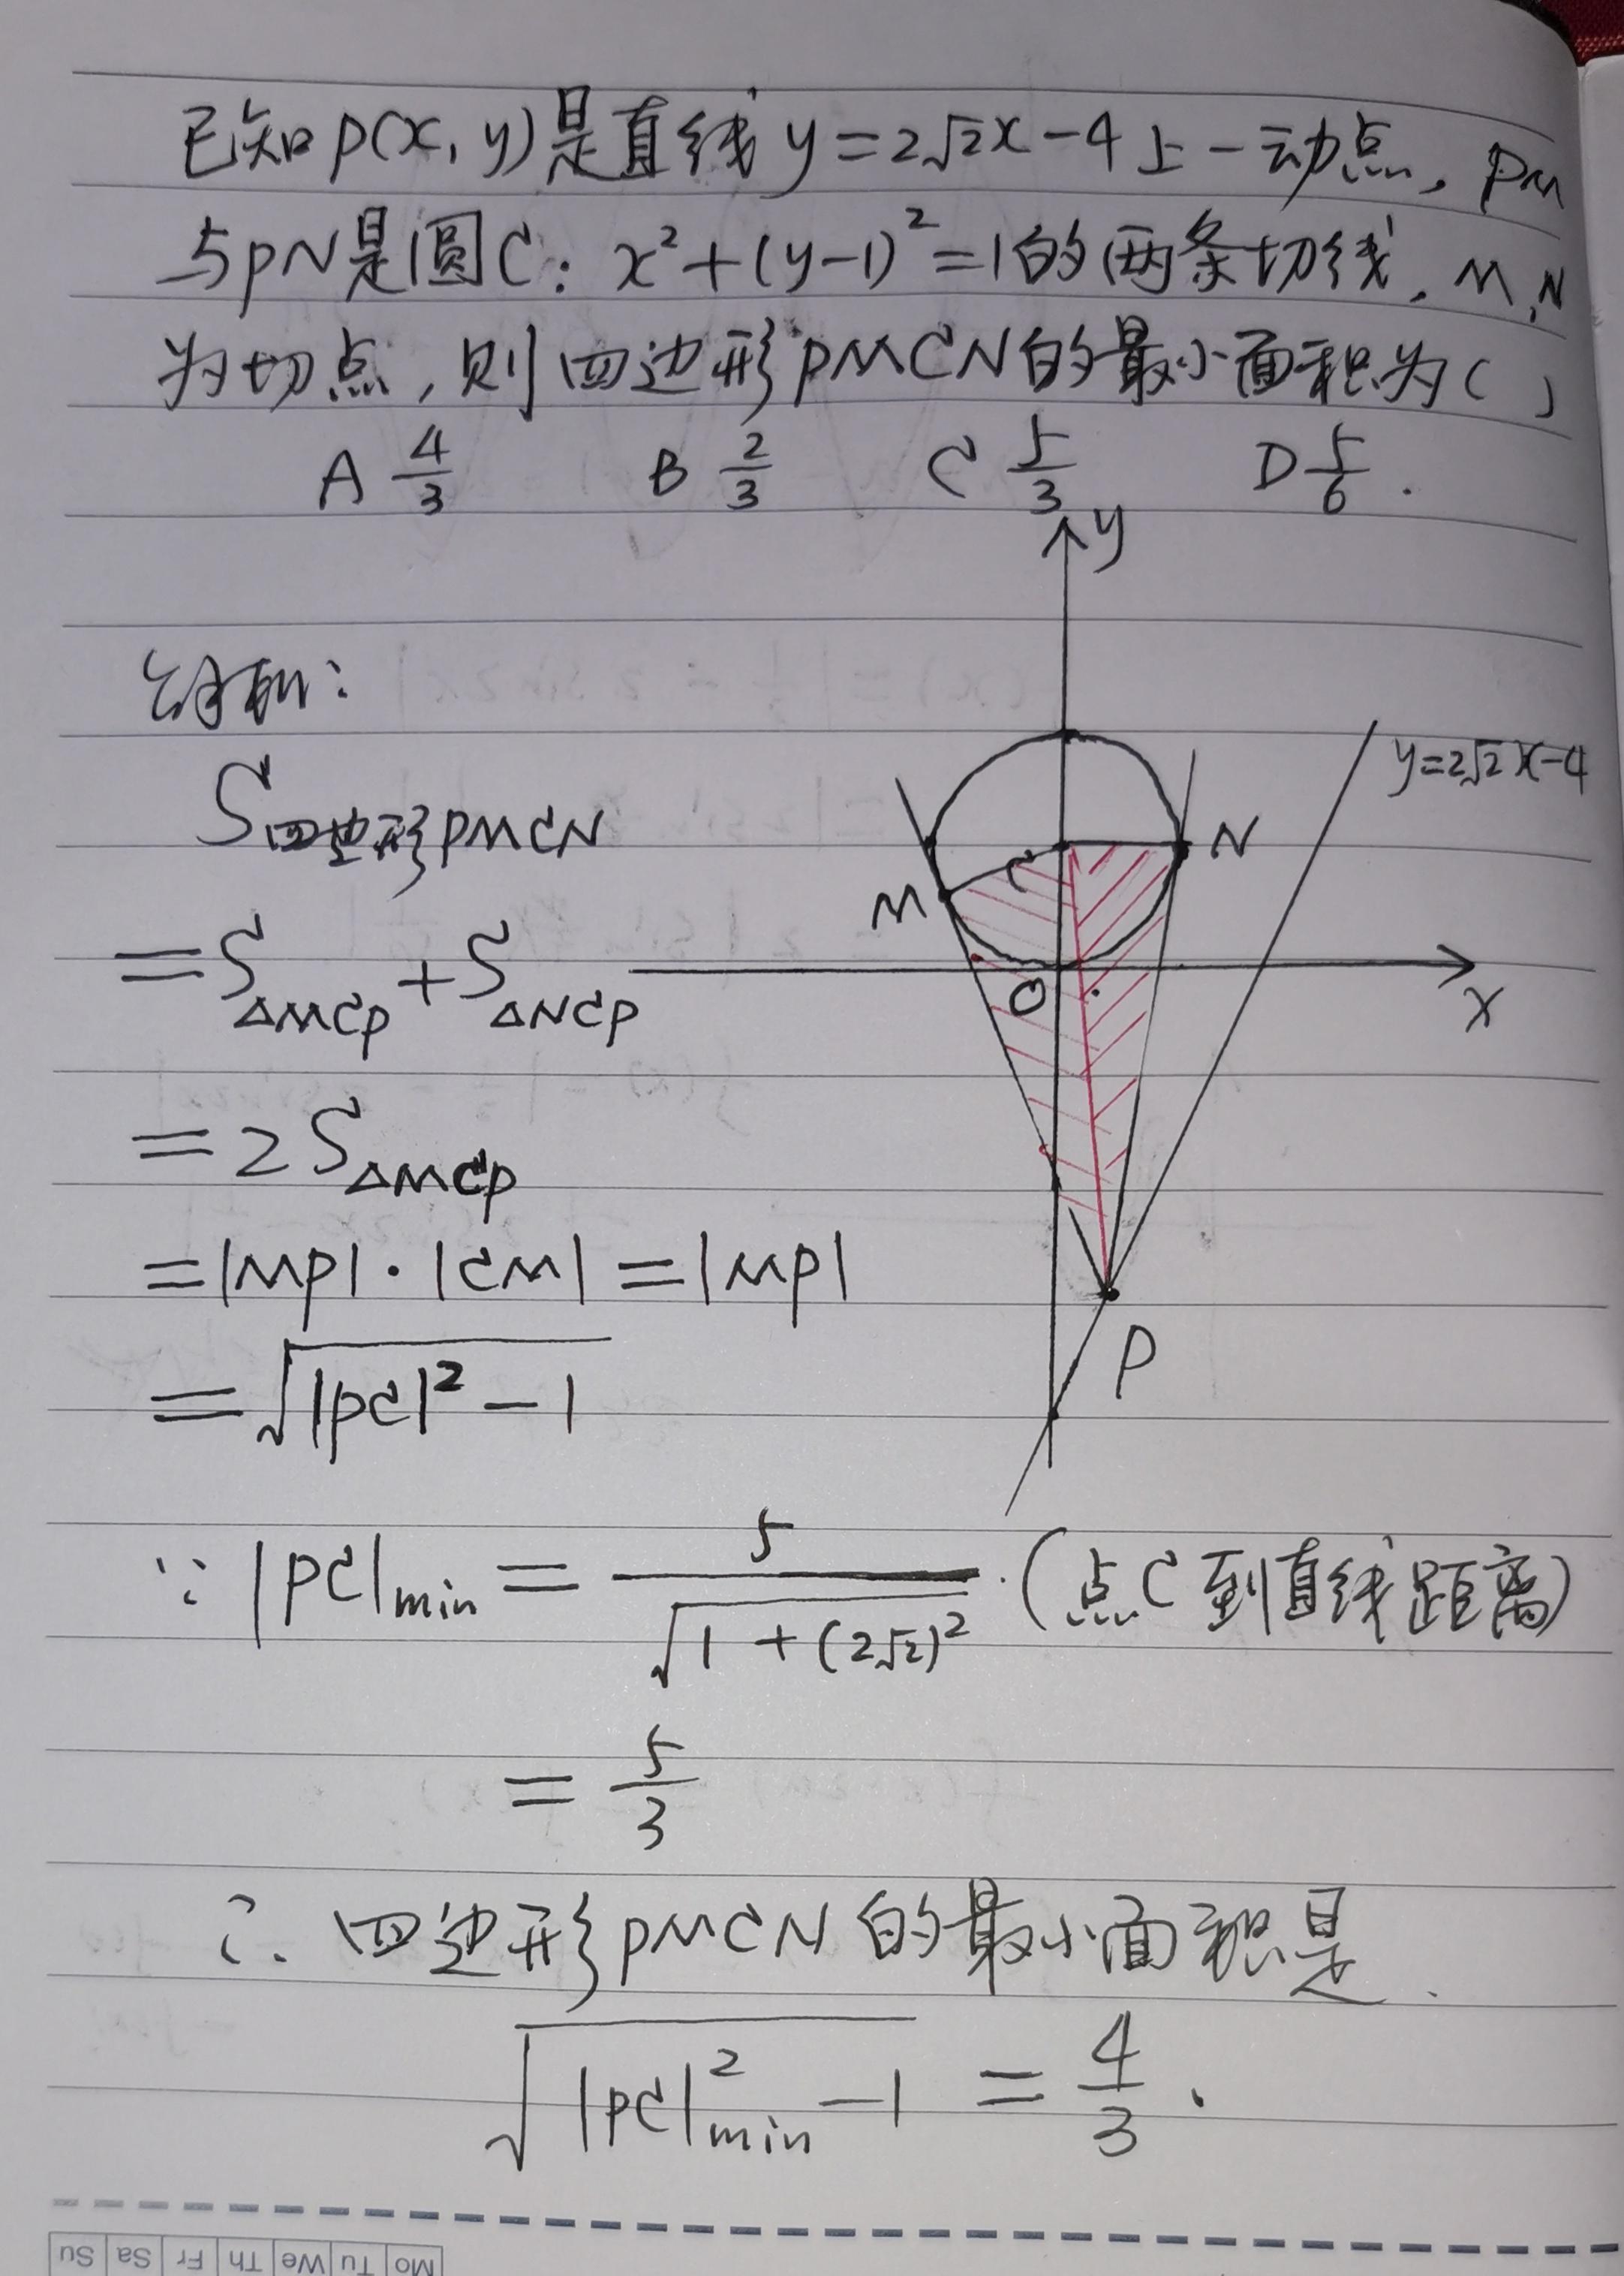 已知P(x,y)是直线y=2√2x-4上一动点，PM
与PN是圆C：x²+(y-1)²=1的两条切线，M,N
为切点，则四边形PMCN的最小面积为( )
A 4/3 B 2/3 C 5/3 D 5/6.
y
解析：
y=2√2x-4
S四边形PMCN
N
C
M
=S△MCP+S△NCP
O
x
=2S△MCP
=|MP|·|CM|=|MP|
P
=√(|PC|²-1)
∵|PC|min=5/√(1+(2√2)²).(点C到直线距离)
=5/3
∴四边形PMCN的最小面积是
√(|PC|²min-1)=4/3.
Mo Tu We Th Fr Sa Su